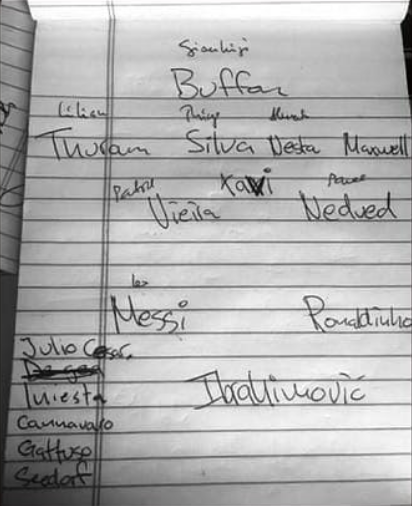 Gianluigi
Buffon
Lilian Thiago
Thuram Silva Nesta Maxwell
Patric Xavi Pavel
Vieira Nedved
Leo
Messi Ronaldinho
Julio Cesar
Iniesta Ibrahimovic
Cannavaro
Gattuso
Seedorf